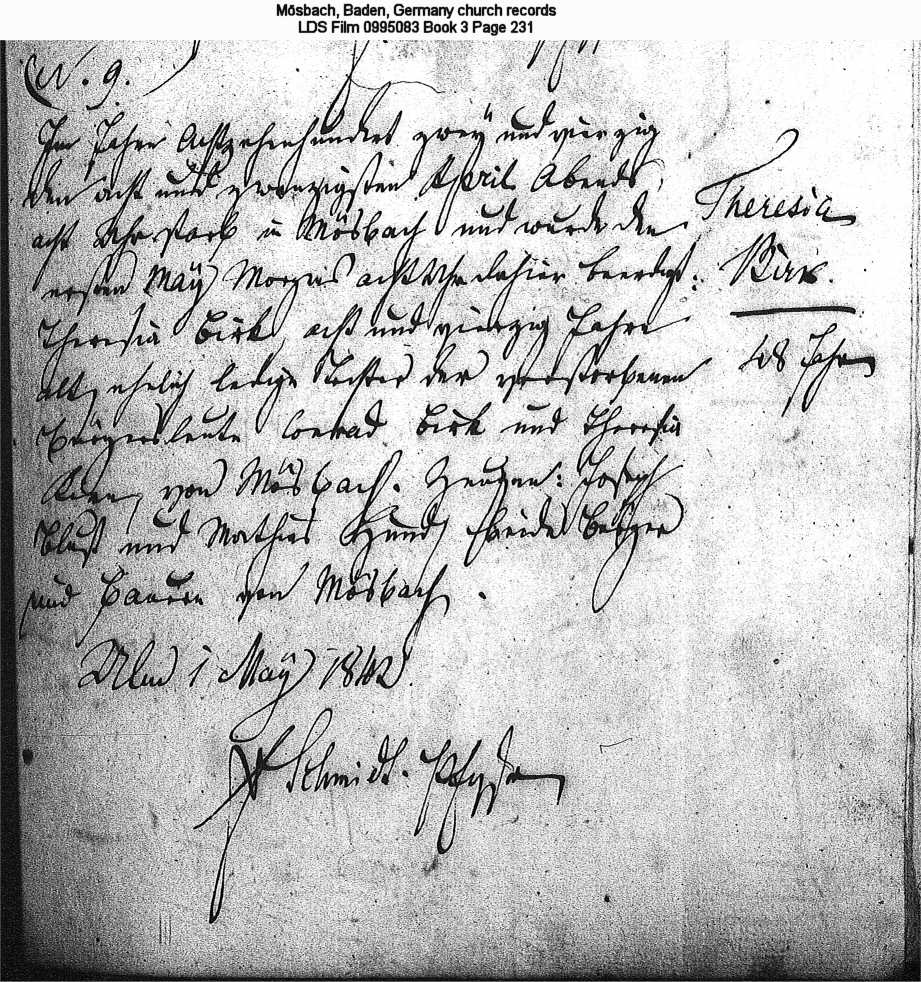 Mösbach, Baden, Germany church records
LDS Film 0995083 Book 3 Page 231
N. 9.
Im Jahre Achtzehenhundert zwey und vierzig
den acht und zwanzigsten April Abends
acht Uhr starb in Mösbach und wurde den
ersten May Morgens acht Uhr dahier beerdigt:
Theresia Birk acht und vierzig Jahre
alt, ehelich ledige Tochter der verstorbenen
Bürgersleute Conrad Birk und Theresia
von Mösbach. Zeugen: Joseph
und Mathias Hund beide Bürger
und Bauern von Mösbach.
Theresia
Birk.
48 Jahr
Ulm 1 May 1842
Schmidt.